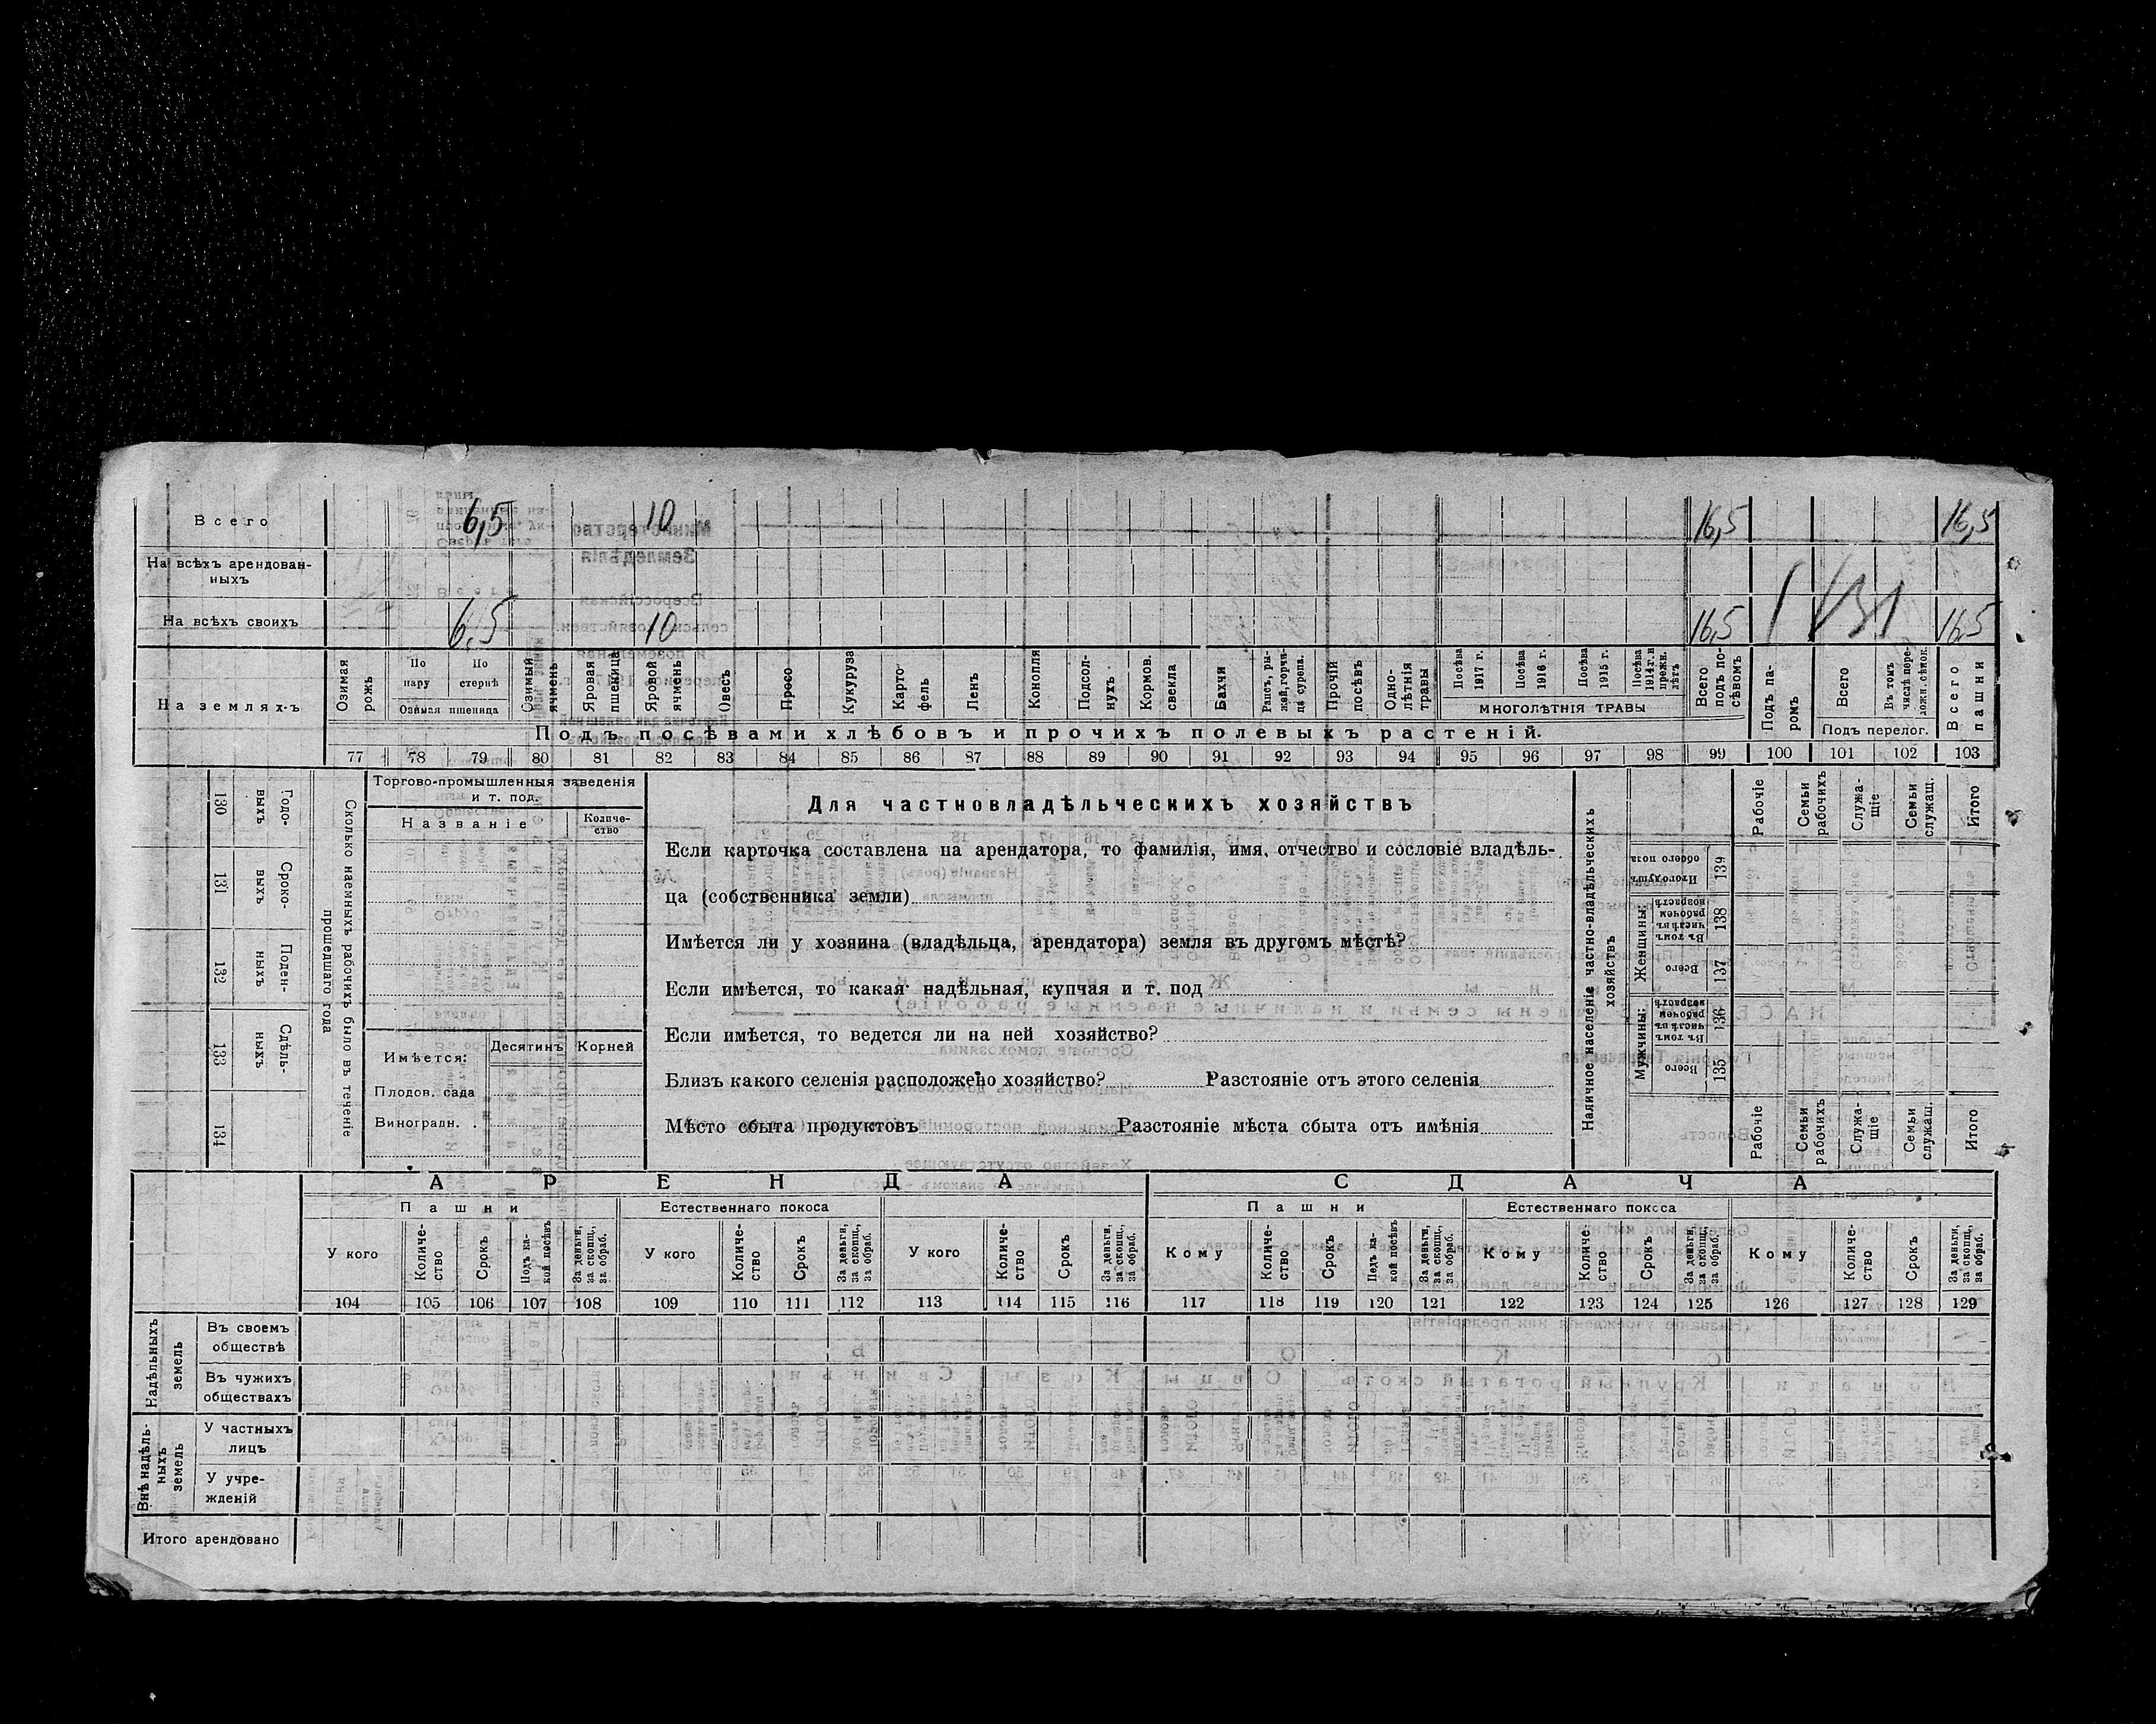 Всего 6,5 10 16,5 16,5
На всѣхъ арендован-
ныхъ
На всѣхъ своихъ 6,5 10 16,5 16,5
На земляхъ
Озимая рожь
По пару
По стернѣ
Озимая пшеница
Озимый ячмень
Яровая пшеница
Яровой ячмень
Овесъ
Просо
Кукуруза
Карто-
фель
Ленъ
Конопля
Подсол-
нухъ
Кормов. свекла
Бахчи
Рапсъ, ры-
жей, горчи-
ца сурепа.
Прочій посѣвъ
Одно-
лѣтнія травы
Посѣва 1917 г.
Посѣва 1916 г.
Посѣва 1915 г.
Посѣва 1914 г. и прежн. лѣтъ
МНОГОЛѢТНІЯ ТРАВЫ
Всего подъ по-
сѣвомъ
Подъ па-
ромъ
Всего
Въ томъ числѣ пере-
ложн. сѣнок.
Подъ перелог.
Всего пашни
Подъ посѣвами хлѣбовъ и прочихъ полевыхъ растеній.
77 78 79 80 81 82 83 84 85 86 87 88 89 90 91 92 93 94 95 96 97 98 99 100 101 102 103
Годо-
выхъ
130
Сроко-
выхъ
131
Поден-
ныхъ
132
Сдѣль-
ныхъ
133
134
Сколько наемныхъ рабочихъ было въ теченіе
прошедшаго года
Торгово-промышленныя заведенія
и т. под.
Названіе
Количе-
ство
Имѣется:
Десятинъ Корней
Плодов. сада
Виноградн.
Для частновладѣльческихъ хозяйствъ
Если карточка составлена на арендатора, то фамилія, имя, отчество и сословіе владѣль-
ца (собственника земли)
Имѣется ли у хозяина (владѣльца, арендатора) земля въ другомъ мѣстѣ?
Если имѣется, то какая надѣльная, купчая и т. под
Если имѣется, то ведется ли на ней хозяйство?
Близъ какого селенія расположено хозяйство? Разстояніе отъ этого селенія
Мѣсто сбыта продуктовъ Разстояніе мѣста сбыта отъ имѣнія
Наличное населеніе частно-владѣльческихъ
хозяйствъ
Мужчины: Женщины:
Всего 135
Въ томъ числѣ въ рабочемъ возрастѣ 136
Всего 137
Въ томъ числѣ въ рабочемъ возрастѣ 138
Итого душъ обоего пола 139
Рабочіе
Семьи рабочихъ
Служа-
щіе
Семьи служащ.
Итого
Рабочіе
Семьи рабочихъ
Служа-
щіе
Семьи служащ.
Итого
АРЕНДА СДАЧА
Пашни Естественнаго покоса Пашни Естественнаго покоса
У кого
Количе-
ство
Срокъ
Подъ ка-
кой посѣвъ
За деньги, за скопщ., за обраб.
У кого
Количе-
ство
Срокъ
За деньги, за скопщ., за обраб.
У кого
Количе-
ство
Срокъ
За деньги, за скопщ., за обраб.
Кому
Количе-
ство
Срокъ
Подъ ка-
кой посѣвъ
За деньги, за скопщ., за обраб.
Кому
Количе-
ство
Срокъ
За деньги, за скопщ., за обраб.
Кому
Количе-
ство
Срокъ
За деньги, за скопщ., за обраб.
104 105 106 107 108 109 110 111 112 113 114 115 116 117 118 119 120 121 122 123 124 125 126 127 128 129
Надѣльныхъ земель
Въ своемъ
обществѣ
Въ чужихъ
обществахъ
Внѣ надѣль-
ныхъ земель
У частныхъ
лицъ
У учре-
жденій
Итого арендовано